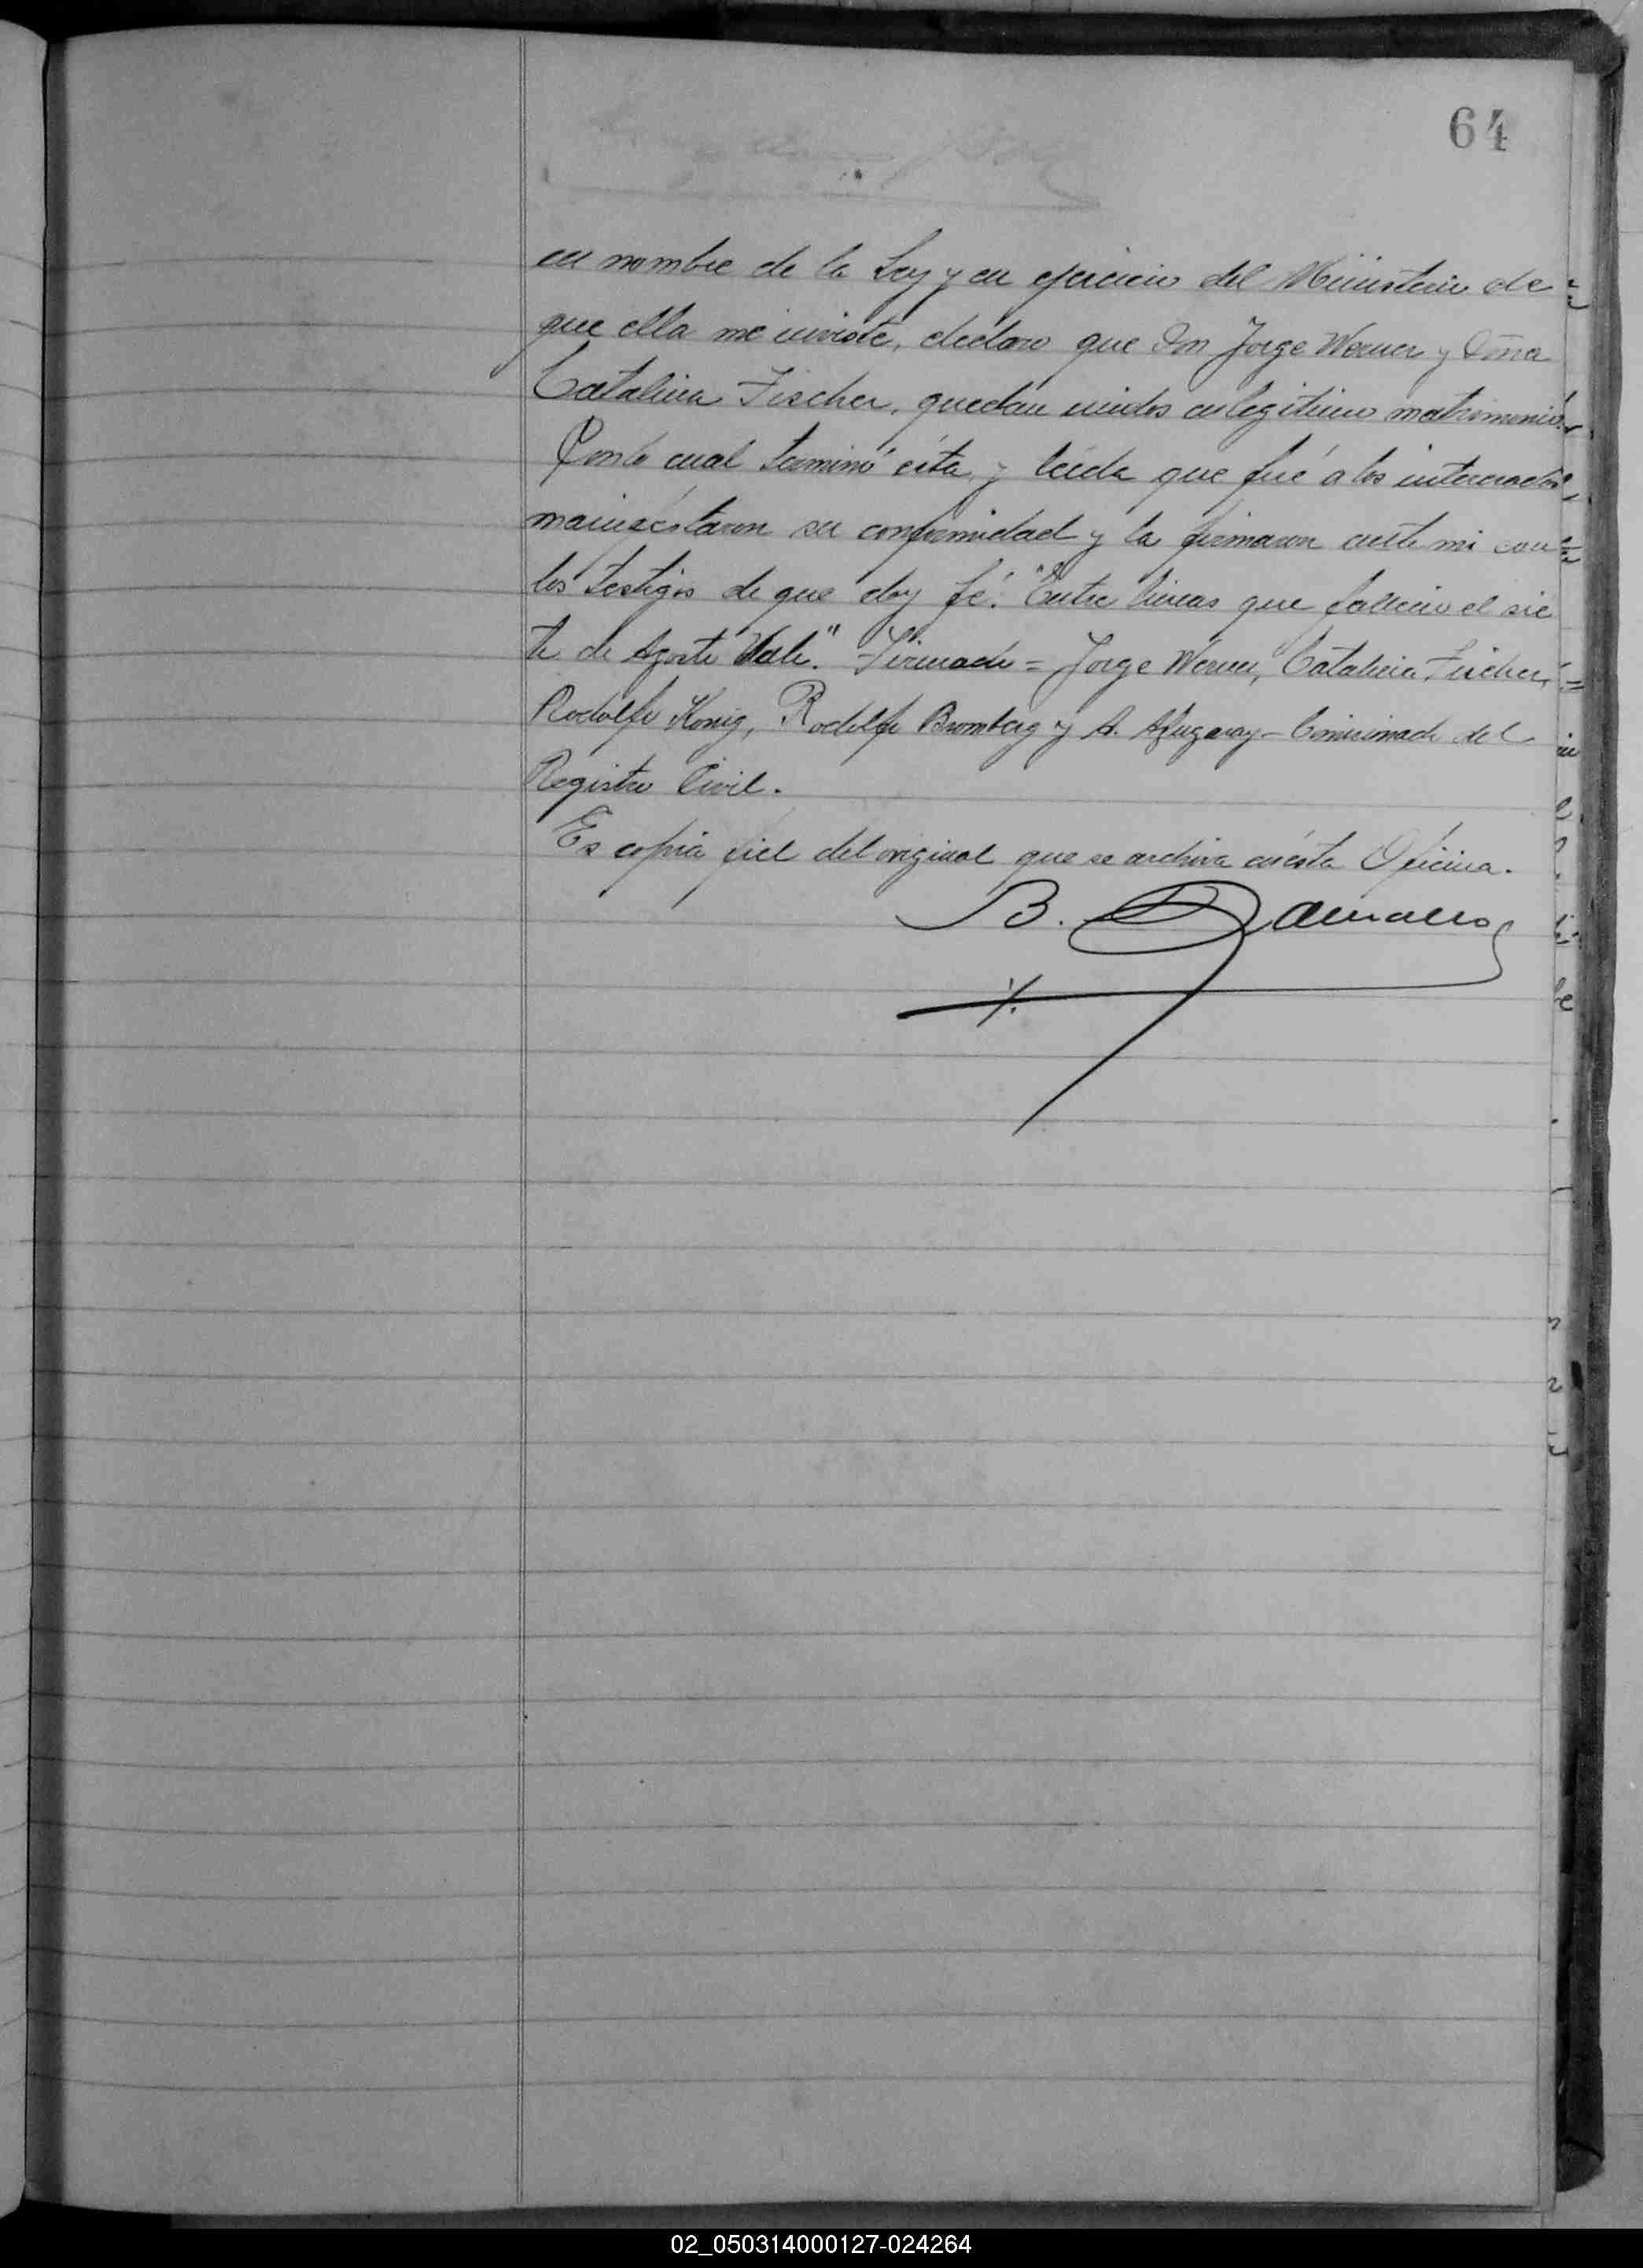 64
en nombre de la Ley y en ejercicio del Ministerio de
que ella me inviste, declaro que Don Jorge Werner y Doña
Catalina Fischer, quedan unidos en legitimo matrimonio.
Con lo cual terminó ésta y leída que fué a los interesados
manifestaron su conformidad y la firmaron ante mi con
los testigos de que doy fé. "Entre lineas que falleció el sie
te de Agosto Vale." Firmado = Jorge Werner, Catalina Fischer,
Rodolfo Konig, Rodolfo Bromberg y A. Comisionado del
Registro Civil.
Es copia fiel del original que se archiva en ésta Oficina.
B.
02_050314000127-024264